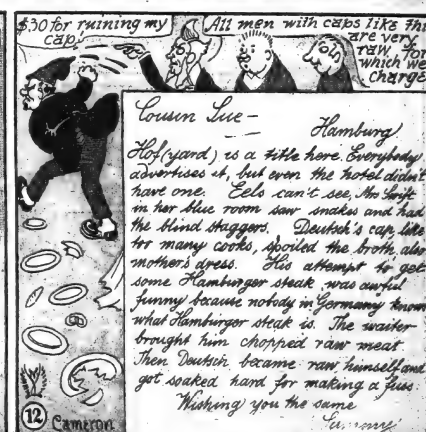 $30 for ruining my
cap!
All men with caps like this
are very
raw, for
which we
charge
Cousin Sue —
Hamburg
Hof (yard) is a title here. Everybody
advertises it, but even the hotel didn't
have one. Eels can't see, Mrs Swift
in her blue room saw snakes and had
the blind staggers. Deutsch's cap like
too many cooks, spoiled the broth, also
mother's dress. His attempt to get
some Hamburger steak, was awful
funny because nobody in Germany know
what Hamburger steak is. The waiter
brought him chopped raw meat.
Then Deutsch became raw himself and
got soaked hard for making a fuss.
Wishing you the same
12
Cameron